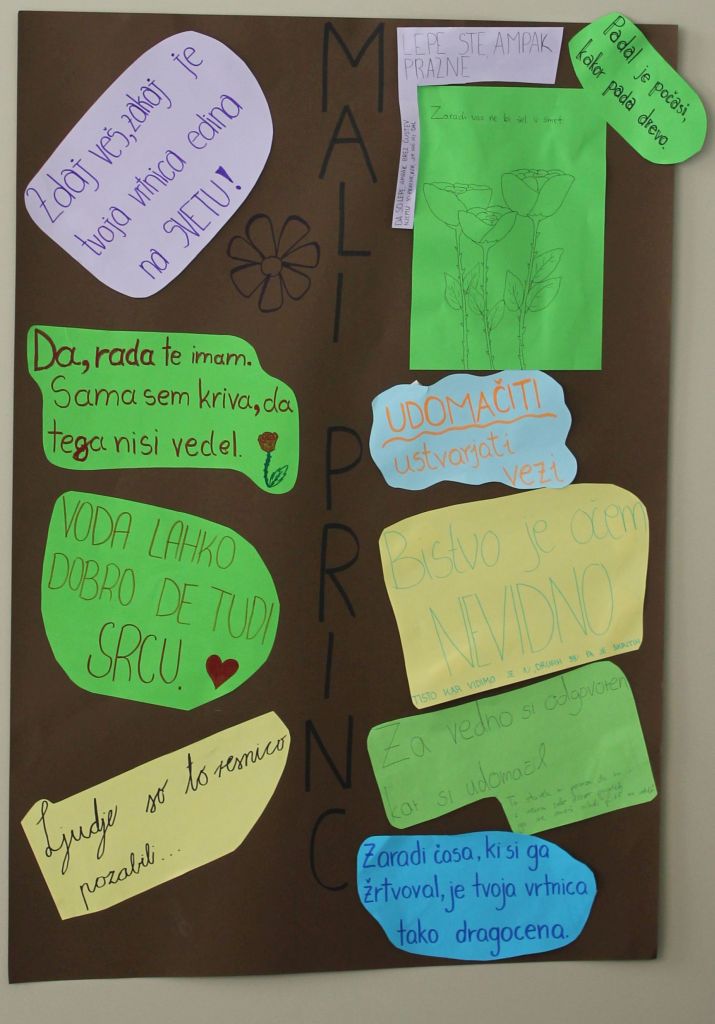 MALI PRINC
Zdaj veš, zakaj je
tvoja vrtnica edina
na SVETU!
LEPE STE, AMPAK
PRAZNE
Zaradi vas ne bi šel v smrt
Padal je počasi,
kakor pada drevo.
Da, rada te imam.
Sama sem kriva, da
tega nisi vedel.
UDOMAČITI
ustvarjati
vezi
VODA LAHKO
DOBRO DE TUDI
SRCU.
Bistvo je očem
NEVIDNO
TISTO KAR VIDIMO JE
Za vedno si odgovoren
kar si udomačil
Ljudje so to resnico
pozabili...
Zaradi časa, ki si ga
žrtvoval, je tvoja vrtnica
tako dragocena.